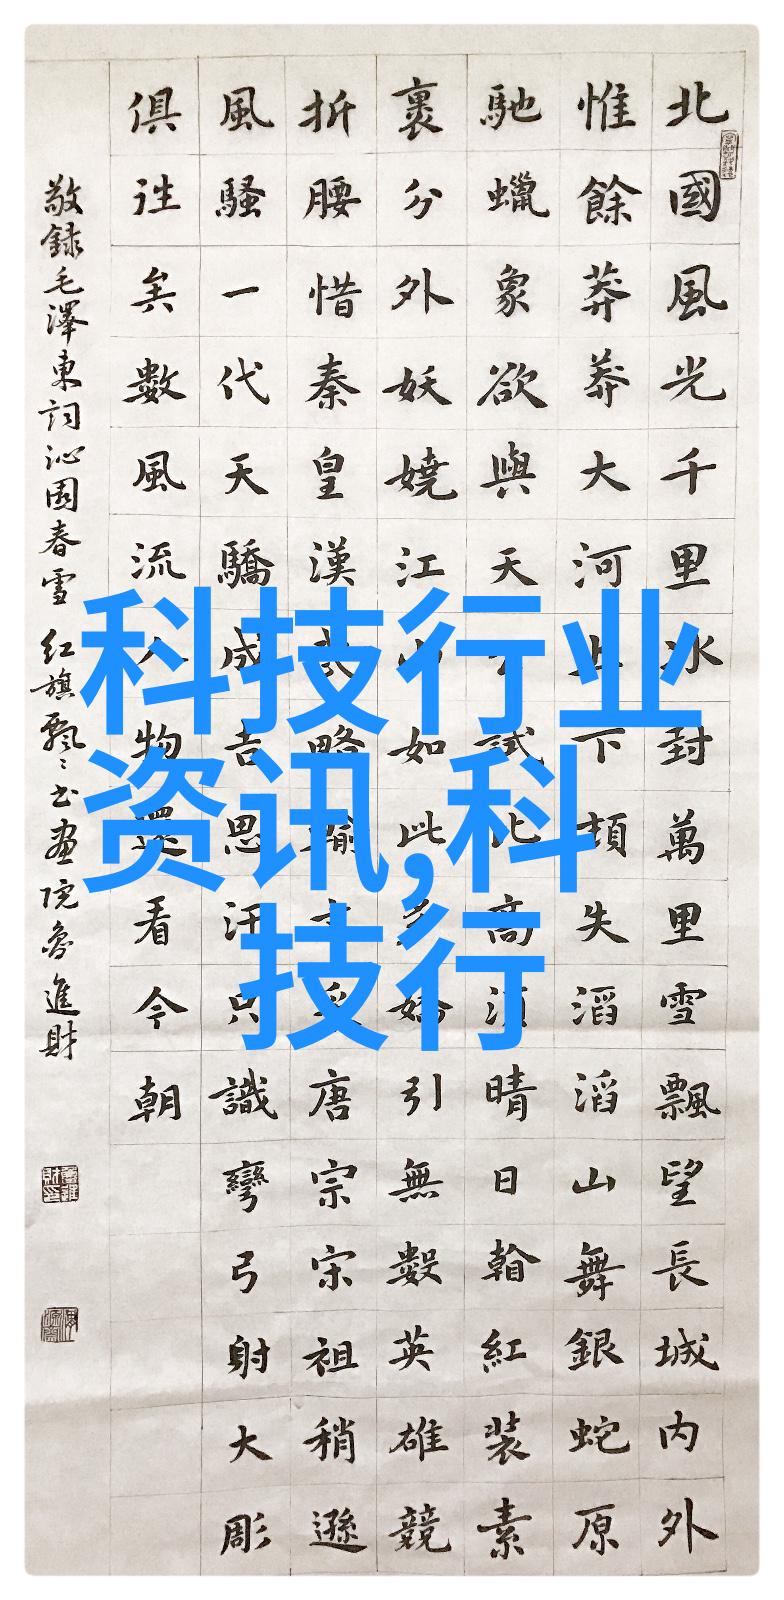 北國風光千里冰封萬里雪飄望長城內外
惟餘莽莽大河上下頓失滔滔山舞銀蛇原
馳蠟象欲與天公試比高須晴日翰紅裝素
裹分外妖嬈江山如此多嬌引無數英雄競
折腰惜秦皇漢武略輸文采唐宗宋祖稍遜
風騷一代天驕成吉思汗只識彎弓射大彫
俱往矣數風流人物還看今朝
敬録毛澤東詞沁園春雪 红旗飄〻书画院魯進財
科技行业
资讯,科
技行